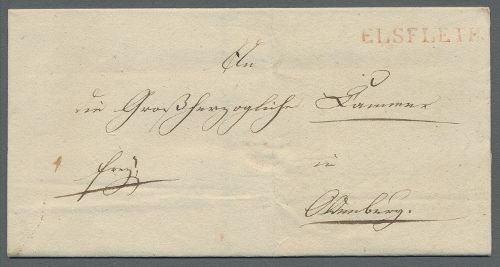 ELSFLETH
An
die Großherzogliche Cammer
frey
in
Oldenburg.